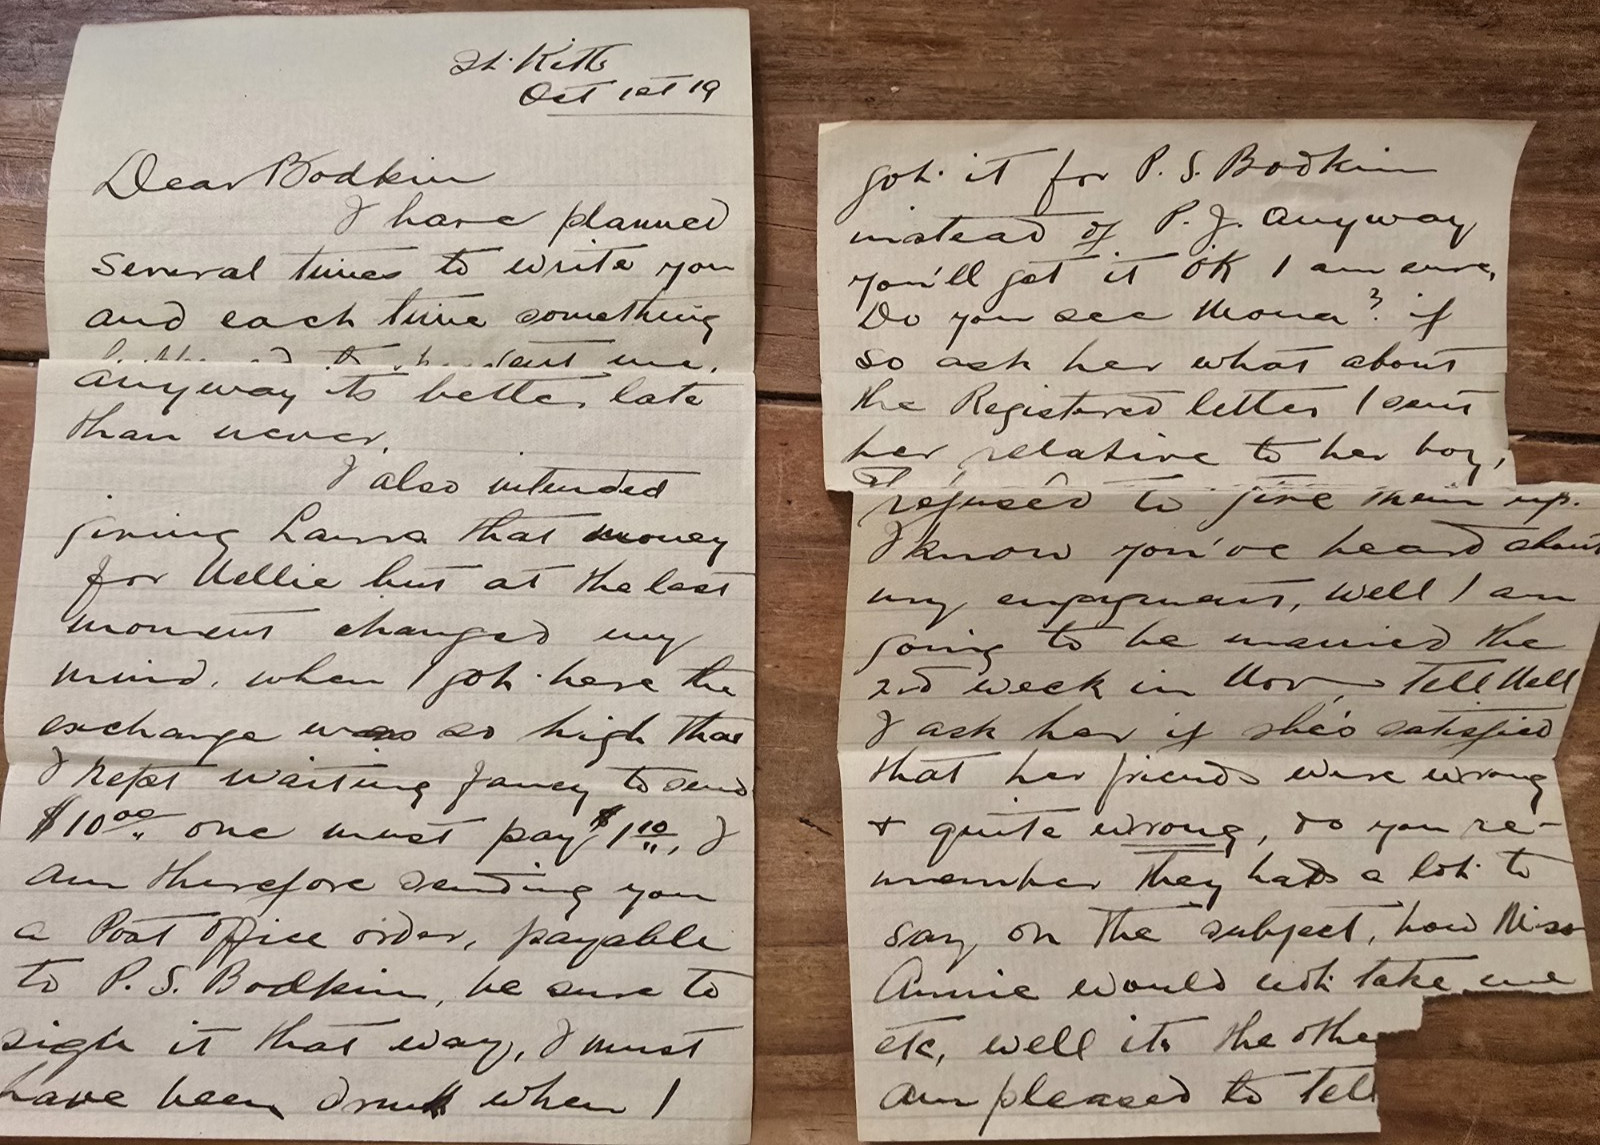 St. Kitts
Oct 1st 19
Dear Bodkin
I have planned
several times to write you
and each time something
to me.
anyway its better late
than never.
I also intended
giving Laura that money
for Nellie but at the last
moment changed my
mind. when I got here the
exchange was so high that
I kept waiting fancy to send
$10.00 one must pay $1.10, I
am therefore sending you
a Post Office order, payable
to P. S. Bodkin, be sure to
sign it that way, I must
have been drunk when I
got it for P. S. Bodkin
instead of P. J. anyway
you'll get it OK I am sure,
Do you see Mona? if
so ask her what about
the Registered letter I sent
her relative to her boy,
refused to give them up.
I know you've heard about
my engagment, well I am
going to be married the
2nd week in Nov, Tell Nell
I ask her if she's satisfied
that her friends were wrong
+ quite wrong, do you re-
member they had a lot to
say on the subject, how Miss
Annie would not take me
etc, well its the othe
am pleased to tell